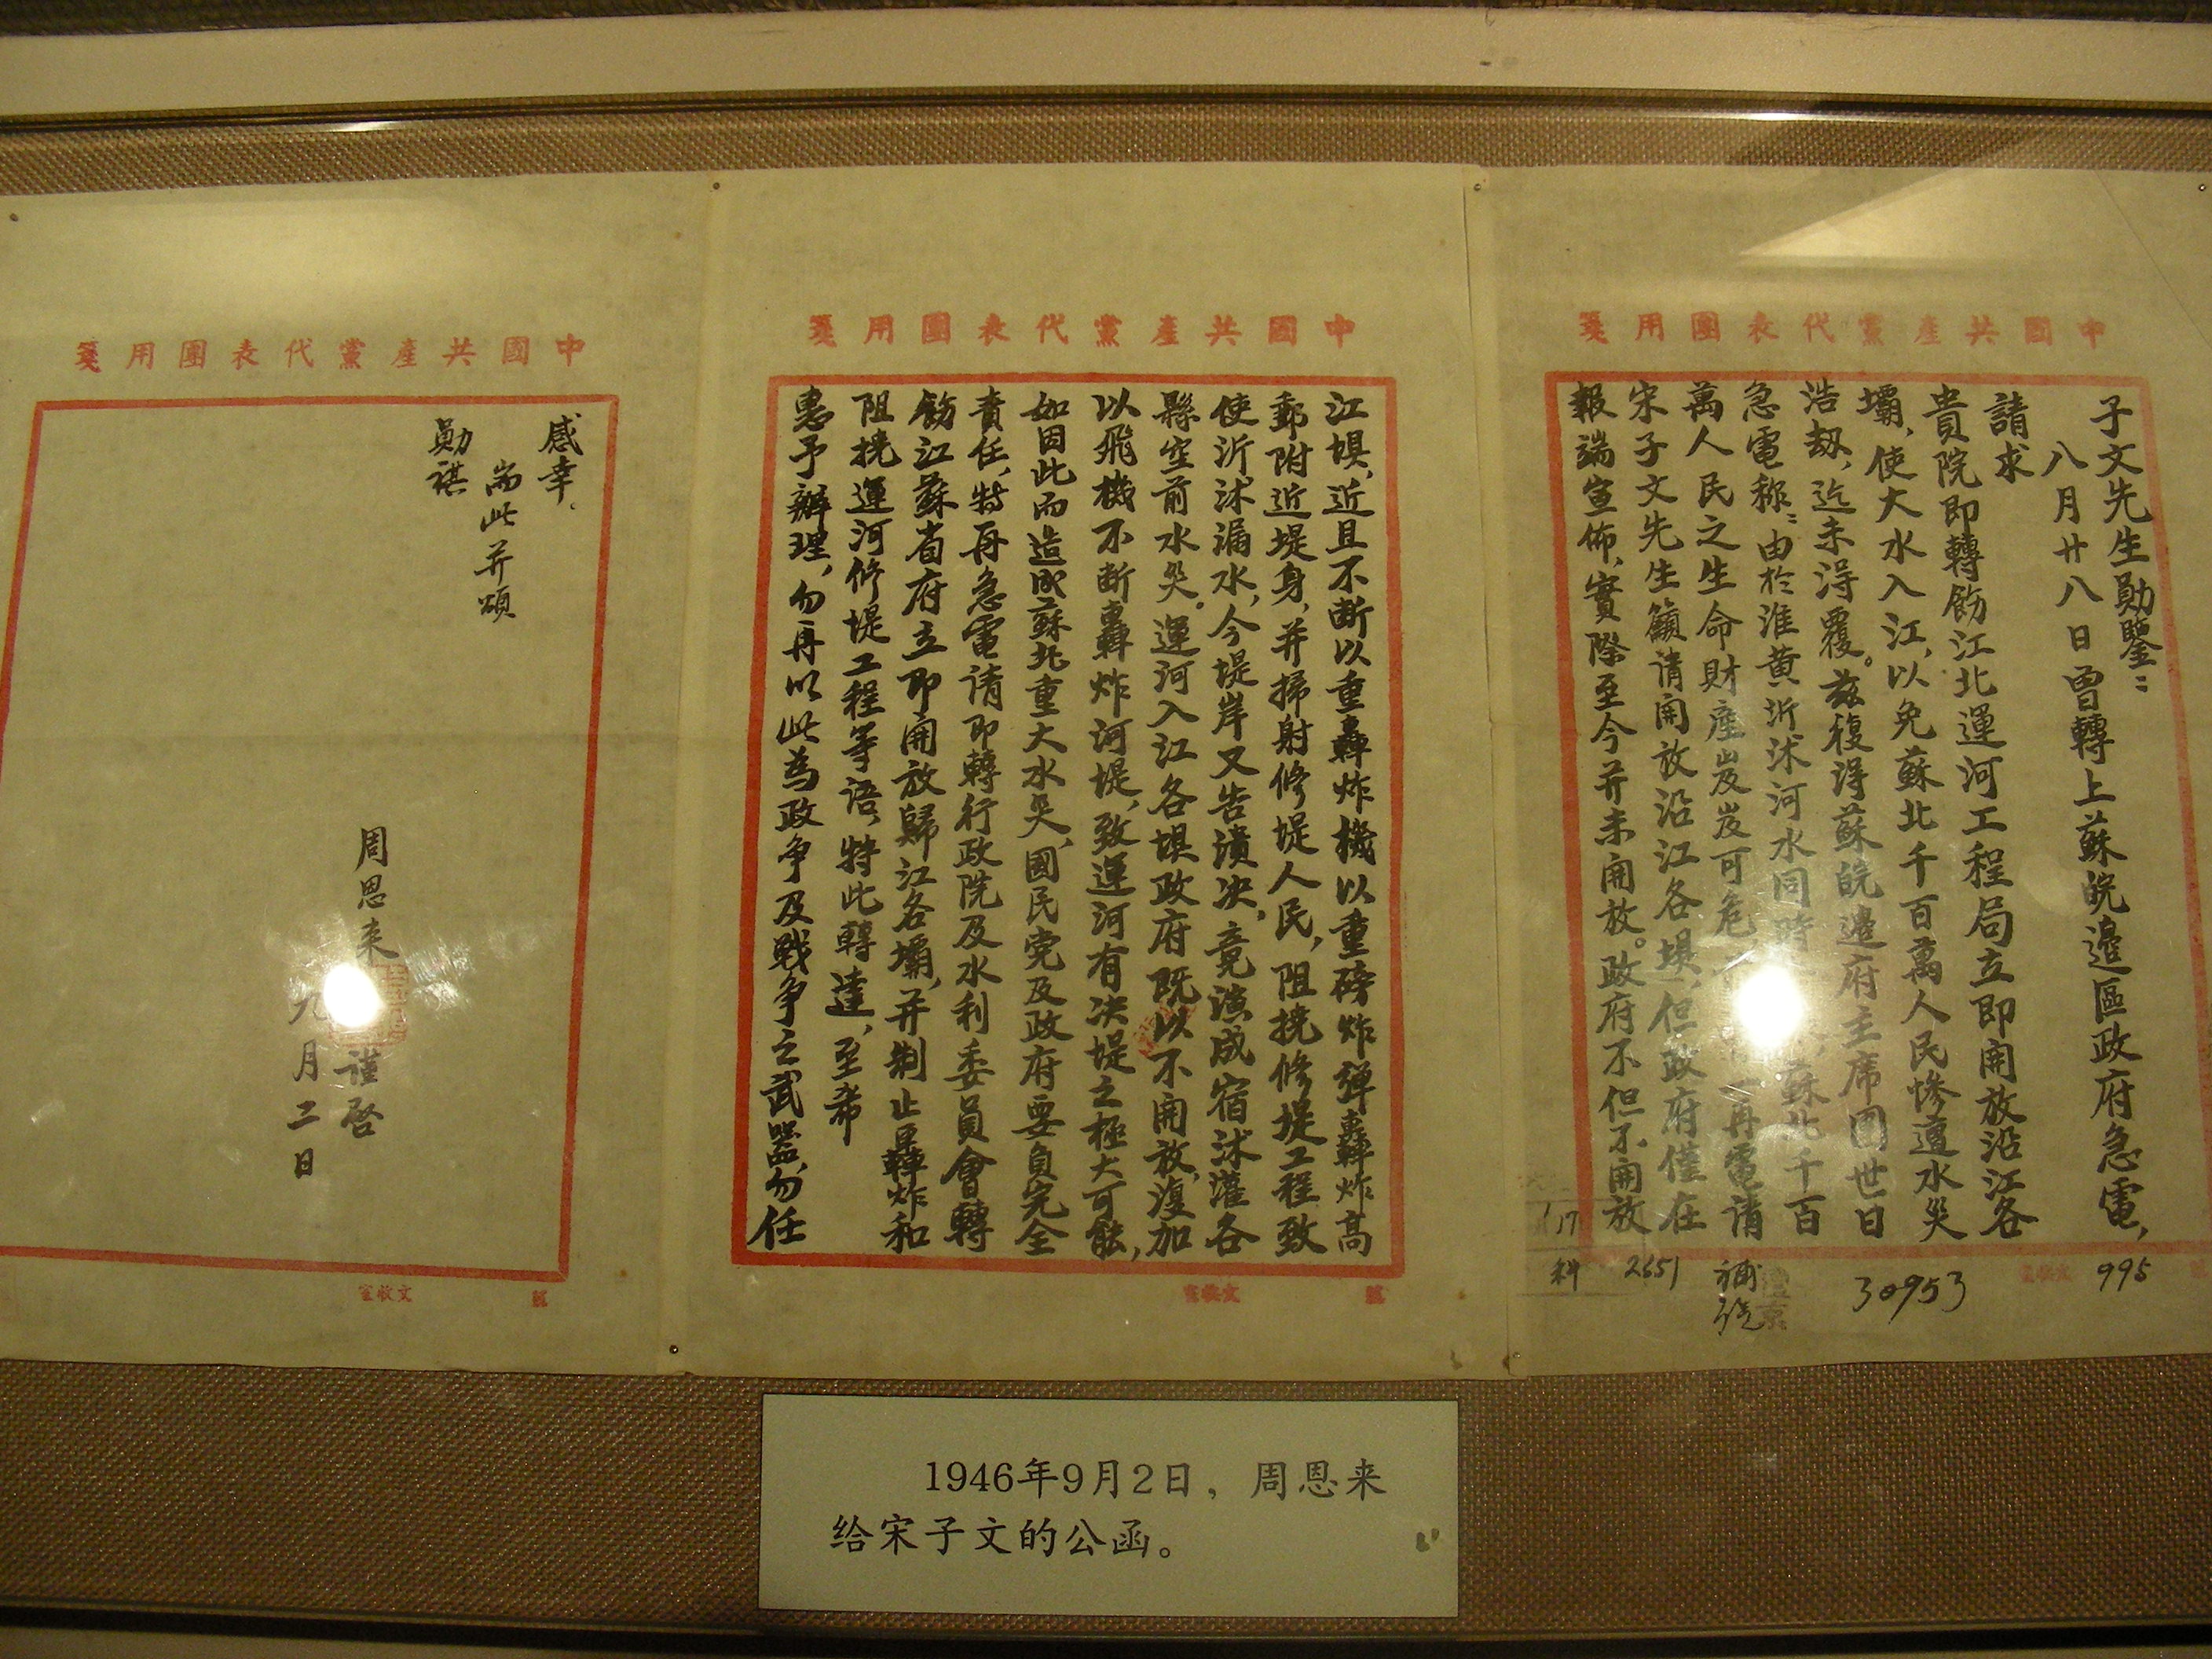 中國共產黨代表團用箋
子文先生勛鑒：
八月廿八日曾轉上蘇皖邊區政府急電，
請求
貴院即轉飭江北運河工程局立即開放沿江各
壩，使大水入江，以免蘇北千百萬人民慘遭水災
浩劫，迄未淂覆。茲複淂蘇皖邊府主席團世日
急電称：由於淮黄沂沭河水同時 蘇北千百
萬人民之生命財產岌岌可危 一再電请
宋子文先生籲请開放沿江各壩，但政府僅在
報端宣佈，實際至今并未開放。政府不但不開放
995
30953
2651
科
中國共產黨代表團用箋
江壩，近且不断以重轟炸機以重磅炸弹轟炸高
郵附近堤身，并掃射修堤人民，阻挠修堤工程致
使沂沭漏水，今堤岸又告潰决，竟演成宿沭灌各
縣空前水災。運河入江各壩政府既以不開放，復加
以飛機不断轟炸河堤，致運河有决堤之極大可能，
如因此而造成蘇北重大水災，國民党及政府要負完全
責任，特再急電请即轉行政院及水利委員會轉
飭江蘇省府立即開放歸江各壩，并制止轟炸和
阻挠運河修堤工程等語，特此轉達，至希
惠予辦理，勿再以此為政争及戰争之武器，勿任
中國共產黨代表團用箋
感幸。
耑此并頌
勛祺
周恩来
謹啓
九月二日
1946年9月2日，周恩来
给宋子文的公函。